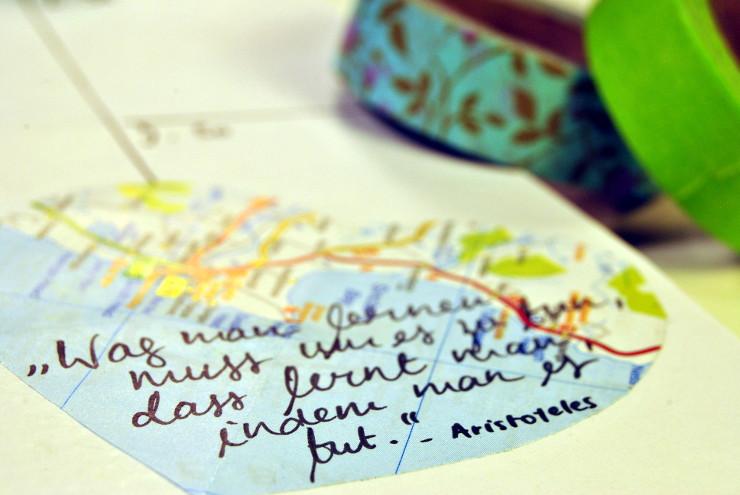 „Was man lernen
muss um es zu tun,
dass lernt man,
indem man es
tut.“ - Aristoteles